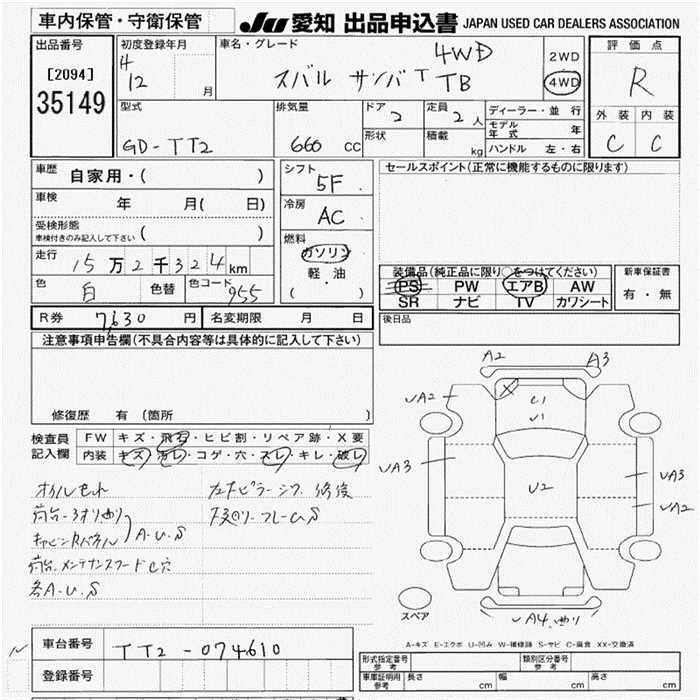 車内保管・守衛保管
JU 愛知 出品申込書 JAPAN USED CAR DEALERS ASSOCIATION
出品番号
[2094]
35149
初度登録年月
4
12 月
車名・グレード
4WD
スバル サンバー TB
2WD
4WD
評価点
R
外装 内装
C C
型式
GD-TT2
排気量
660 cc
ドア
2
定員
2 人
形状
積載
kg
ディーラー・並行
モデル年式 年
ハンドル 左・右
車歴
自家用・( )
車検
年 月( 日)
受検形態
車検付きのみ記入して下さい ( )
走行
15万2千324km
色
白
色替
色コード
955
シフト
5F
冷房
AC
燃料
ガソリン
軽・油
( )
セールスポイント(正常に機能するものに限ります)
装備品(純正品に限り○をつけてください)
PS PW エアB AW
SR ナビ TV カワシート
新車保証書
有・無
R券 7,630 円
名変期限 月 日
後日品
注意事項申告欄(不具合内容等は具体的に記入して下さい)
修復歴 有 〔箇所 〕
検査員記入欄
FW キズ・飛石・ヒビ割・リペア跡・X要
内装 キズ・ヨゴレ・コゲ・穴・スレ・キレ・破レ
オイルモレ
荷台
A・U・S
荷台メンテナンスフードC穴
各A・U・S
修復
下廻リ・フレームS
A2
A3
UA2
C1
U1
UA3
U2
UA3
UA2
UA4
スペア
A-キズ E-エクボ U-凹み W-補修跡 S-サビ C-腐食 XX-交換済
車台番号
TT2-074610
登録番号
形式指定番号 参考
類別区分番号 参考
車庫証明用 参考
長さ cm
幅 cm
高さ cm